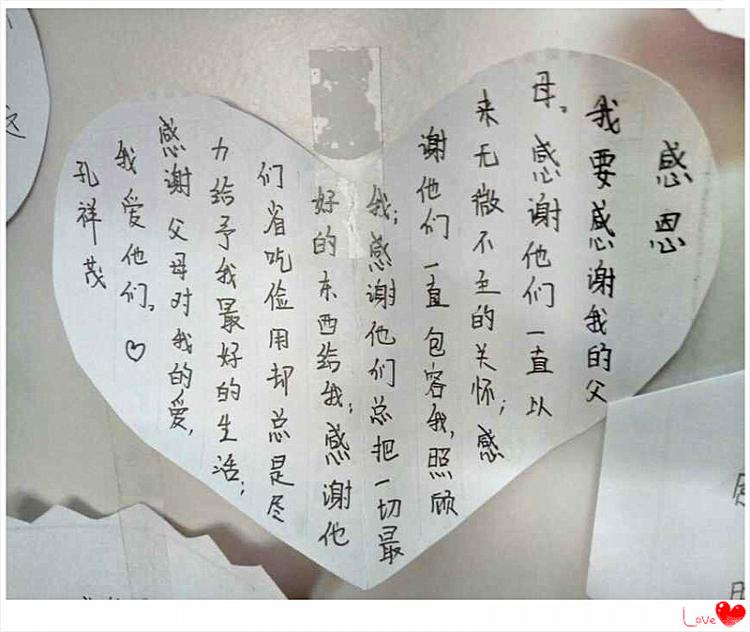 感恩
我要感谢我的父
母。感谢他们一直以
来无微不至的关怀；感
谢他们一直包容我，照顾
我；感谢他们总把一切最
好的东西给我；感谢他
们省吃俭用却总是尽
力给予我最好的生活；
感谢父母对我的爱，
我爱他们。♡
孔祥茂
这
Love